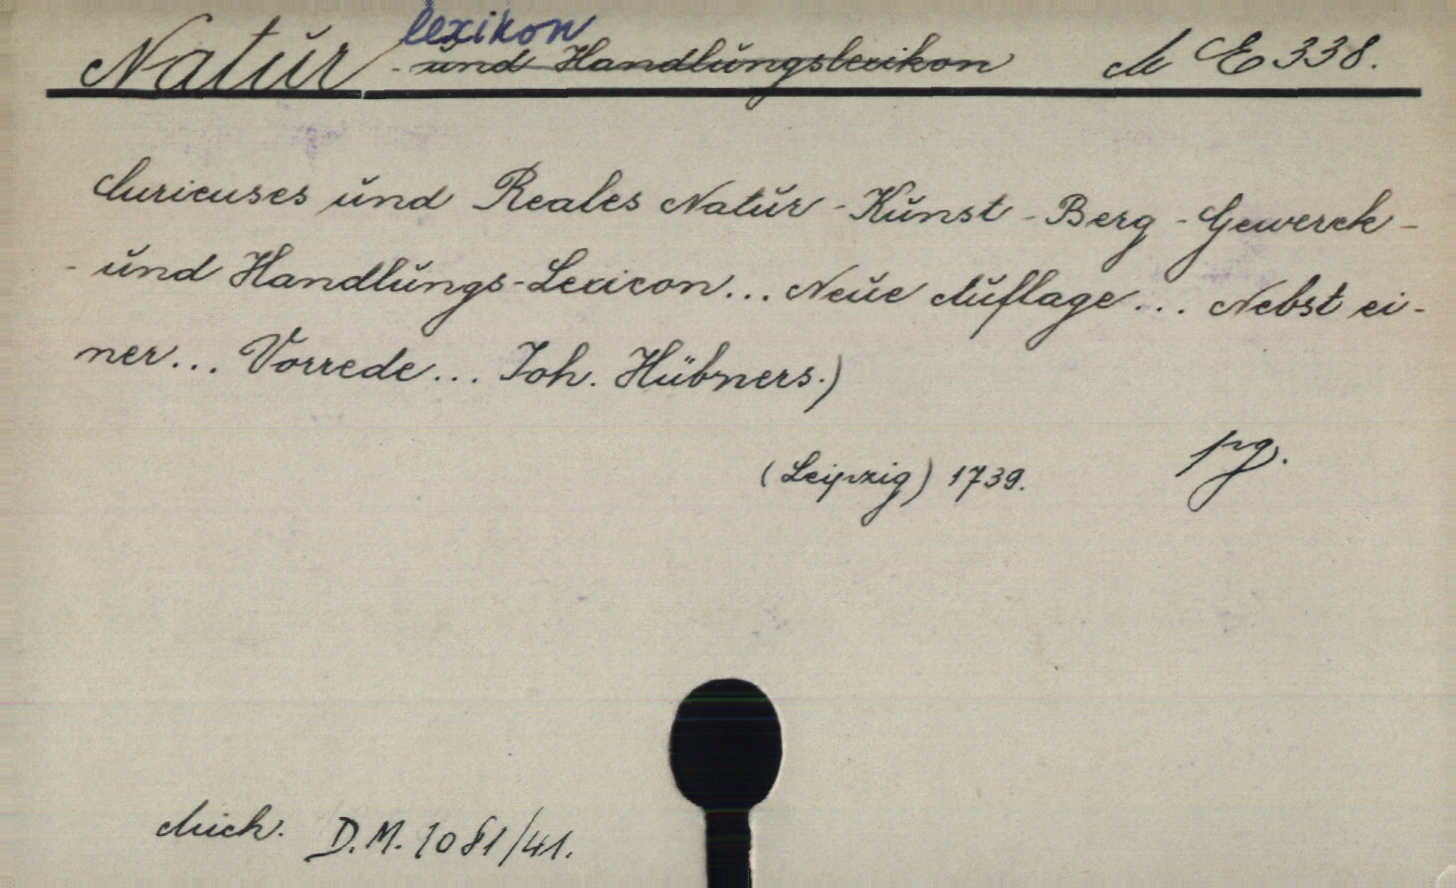 Naturlexikon und Handlungslexikon M E 338.
Curieuses und Reales Natur-Kunst-Berg-Gewerck-
-und Handlungs-Lexicon... Neue Auflage... Nebst ei-
ner... Vorrede... Joh. Hübners.)
(Leipzig) 1739. pg.
Mich. D.M. 1081/41.